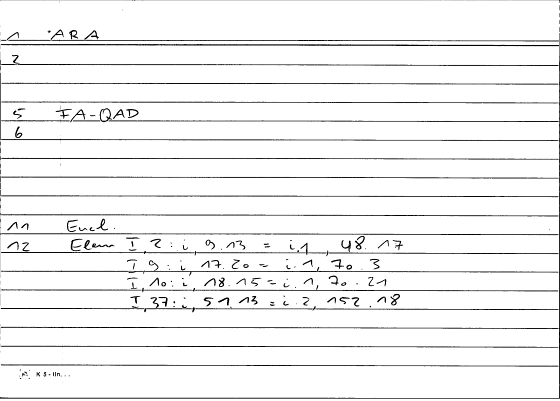 1 ʾARA
2
5 FA-QAD
6
11 Eucl.
12 Elem I, 2 : i, 9.13 = i.1, 48.17
I, 9 : i, 17.20 = i.1, 70.3
I, 10 : i, 18.15 = i.1, 70.21
I, 37 : i, 51.13 = i.2, 152.18
K 5 - lin...